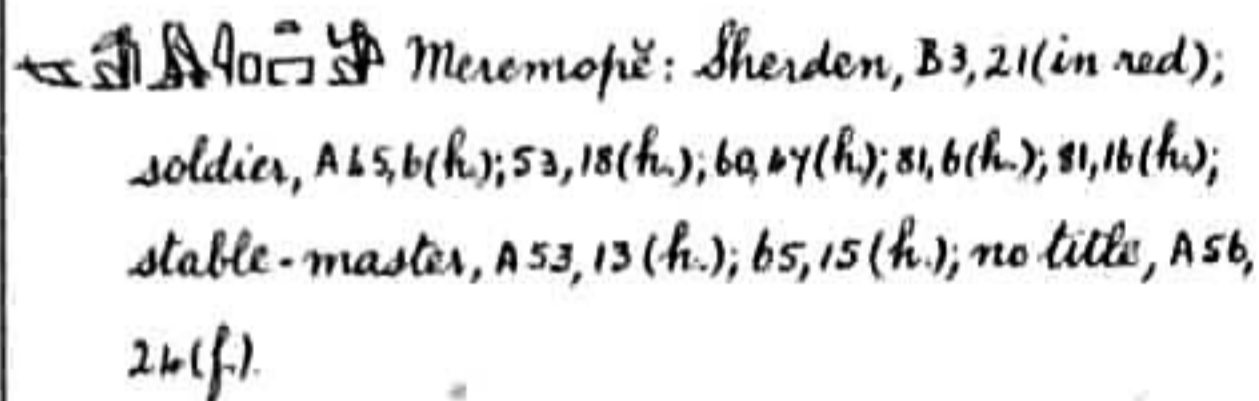 Meremopĕ: Sherden, B3,21(in red);
soldier, A45,6(h.); 53,18(h.); 60,47(h.); 81,6(h.); 81,16(h.);
stable-master, A53,13(h.); 65,15(h.); no title, A56,
24(f.).